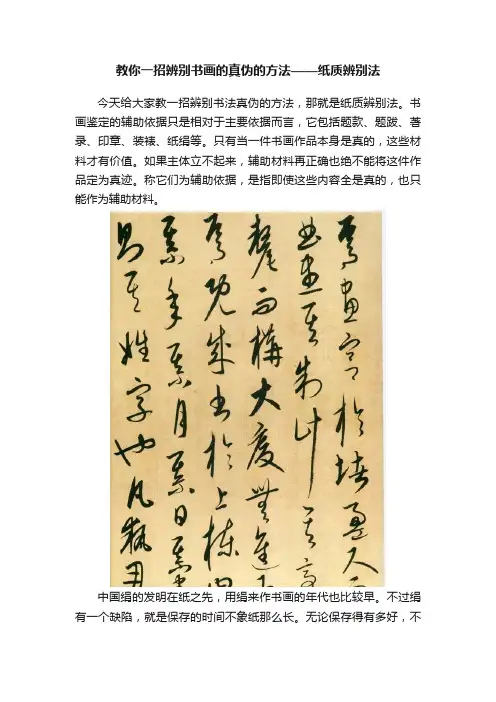 教你一招辨别书画的真伪的方法——纸质辨别法
今天给大家教一招辨别书法真伪的方法，那就是纸质辨别法。书
画鉴定的辅助依据只是相对于主要依据而言，它包括题款、题跋、著
录、印章、装裱、纸绢等。只有当一件书画作品本身是真的，这些材
料才有价值。如果主体立不起来，辅助材料再正确也绝不能将这件作
品定为真迹。称它们为辅助依据，是指即使这些内容全是真的，也只
能作为辅助材料。
焉畫宮於堵盈尺
曲盡其制計其毫
氂而構大廈無進
焉既成書於上棟曰
某年某月某日某
則其姓字也凡執用
中国绢的发明在纸之先，用绢来作书画的年代也比较早。不过绢
有一个缺陷，就是保存的时间不象纸那么长。无论保存得有多好，不